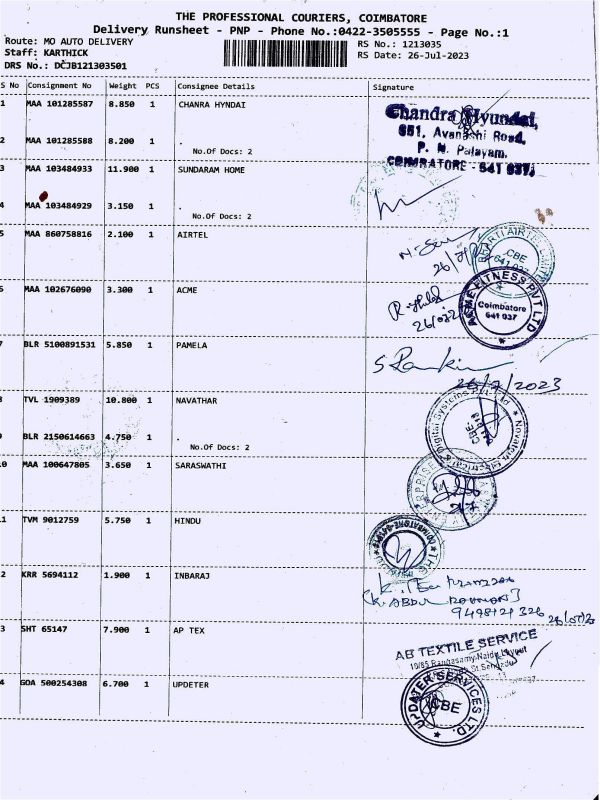 THE PROFESSIONAL COURIERS, COIMBATORE
Delivery Runsheet - PNP - Phone No.:0422-3505555 - Page No.:1
Route: MO AUTO DELIVERY
RS No.: 1213035
Staff: KARTHICK
RS Date: 26-Jul-2023
DRS No.: DCJB121303501
S No Consignment No Weight PCS Consignee Details Signature
1 MAA 101285587 8.850 1 CHANRA HYNDAI
Chandra Hyundai,
651, Avanashi Road,
P. N. Palayam,
COIMBATORE - 641 037.
2 MAA 101285588 8.200 1 .
No.Of Docs: 2
3 MAA 103484933 11.900 1 SUNDARAM HOME
4 MAA 103484929 3.150 1 .
No.Of Docs: 2
5 MAA 860758816 2.100 1 AIRTEL
CBE
641
6 MAA 102676090 3.300 1 ACME
ACME FITNESS PVT LTD
Coimbatore
641 037
7 BLR 5100891531 5.850 1 PAMELA
26/7/2023
8 TVL 1909389 10.800 1 NAVATHAR
9 BLR 2150614663 4.750 1 .
No.Of Docs: 2
CBE
0 MAA 100647805 3.650 1 SARASWATHI
1 TVM 9012759 5.750 1 HINDU
2 KRR 5694112 1.900 1 INBARAJ
3 SHT 65147 7.900 1 AP TEX
AB TEXTILE SERVICE
4 GOA 500254308 6.700 1 UPDETER
UPDATER SERVICES LTD.
CBE